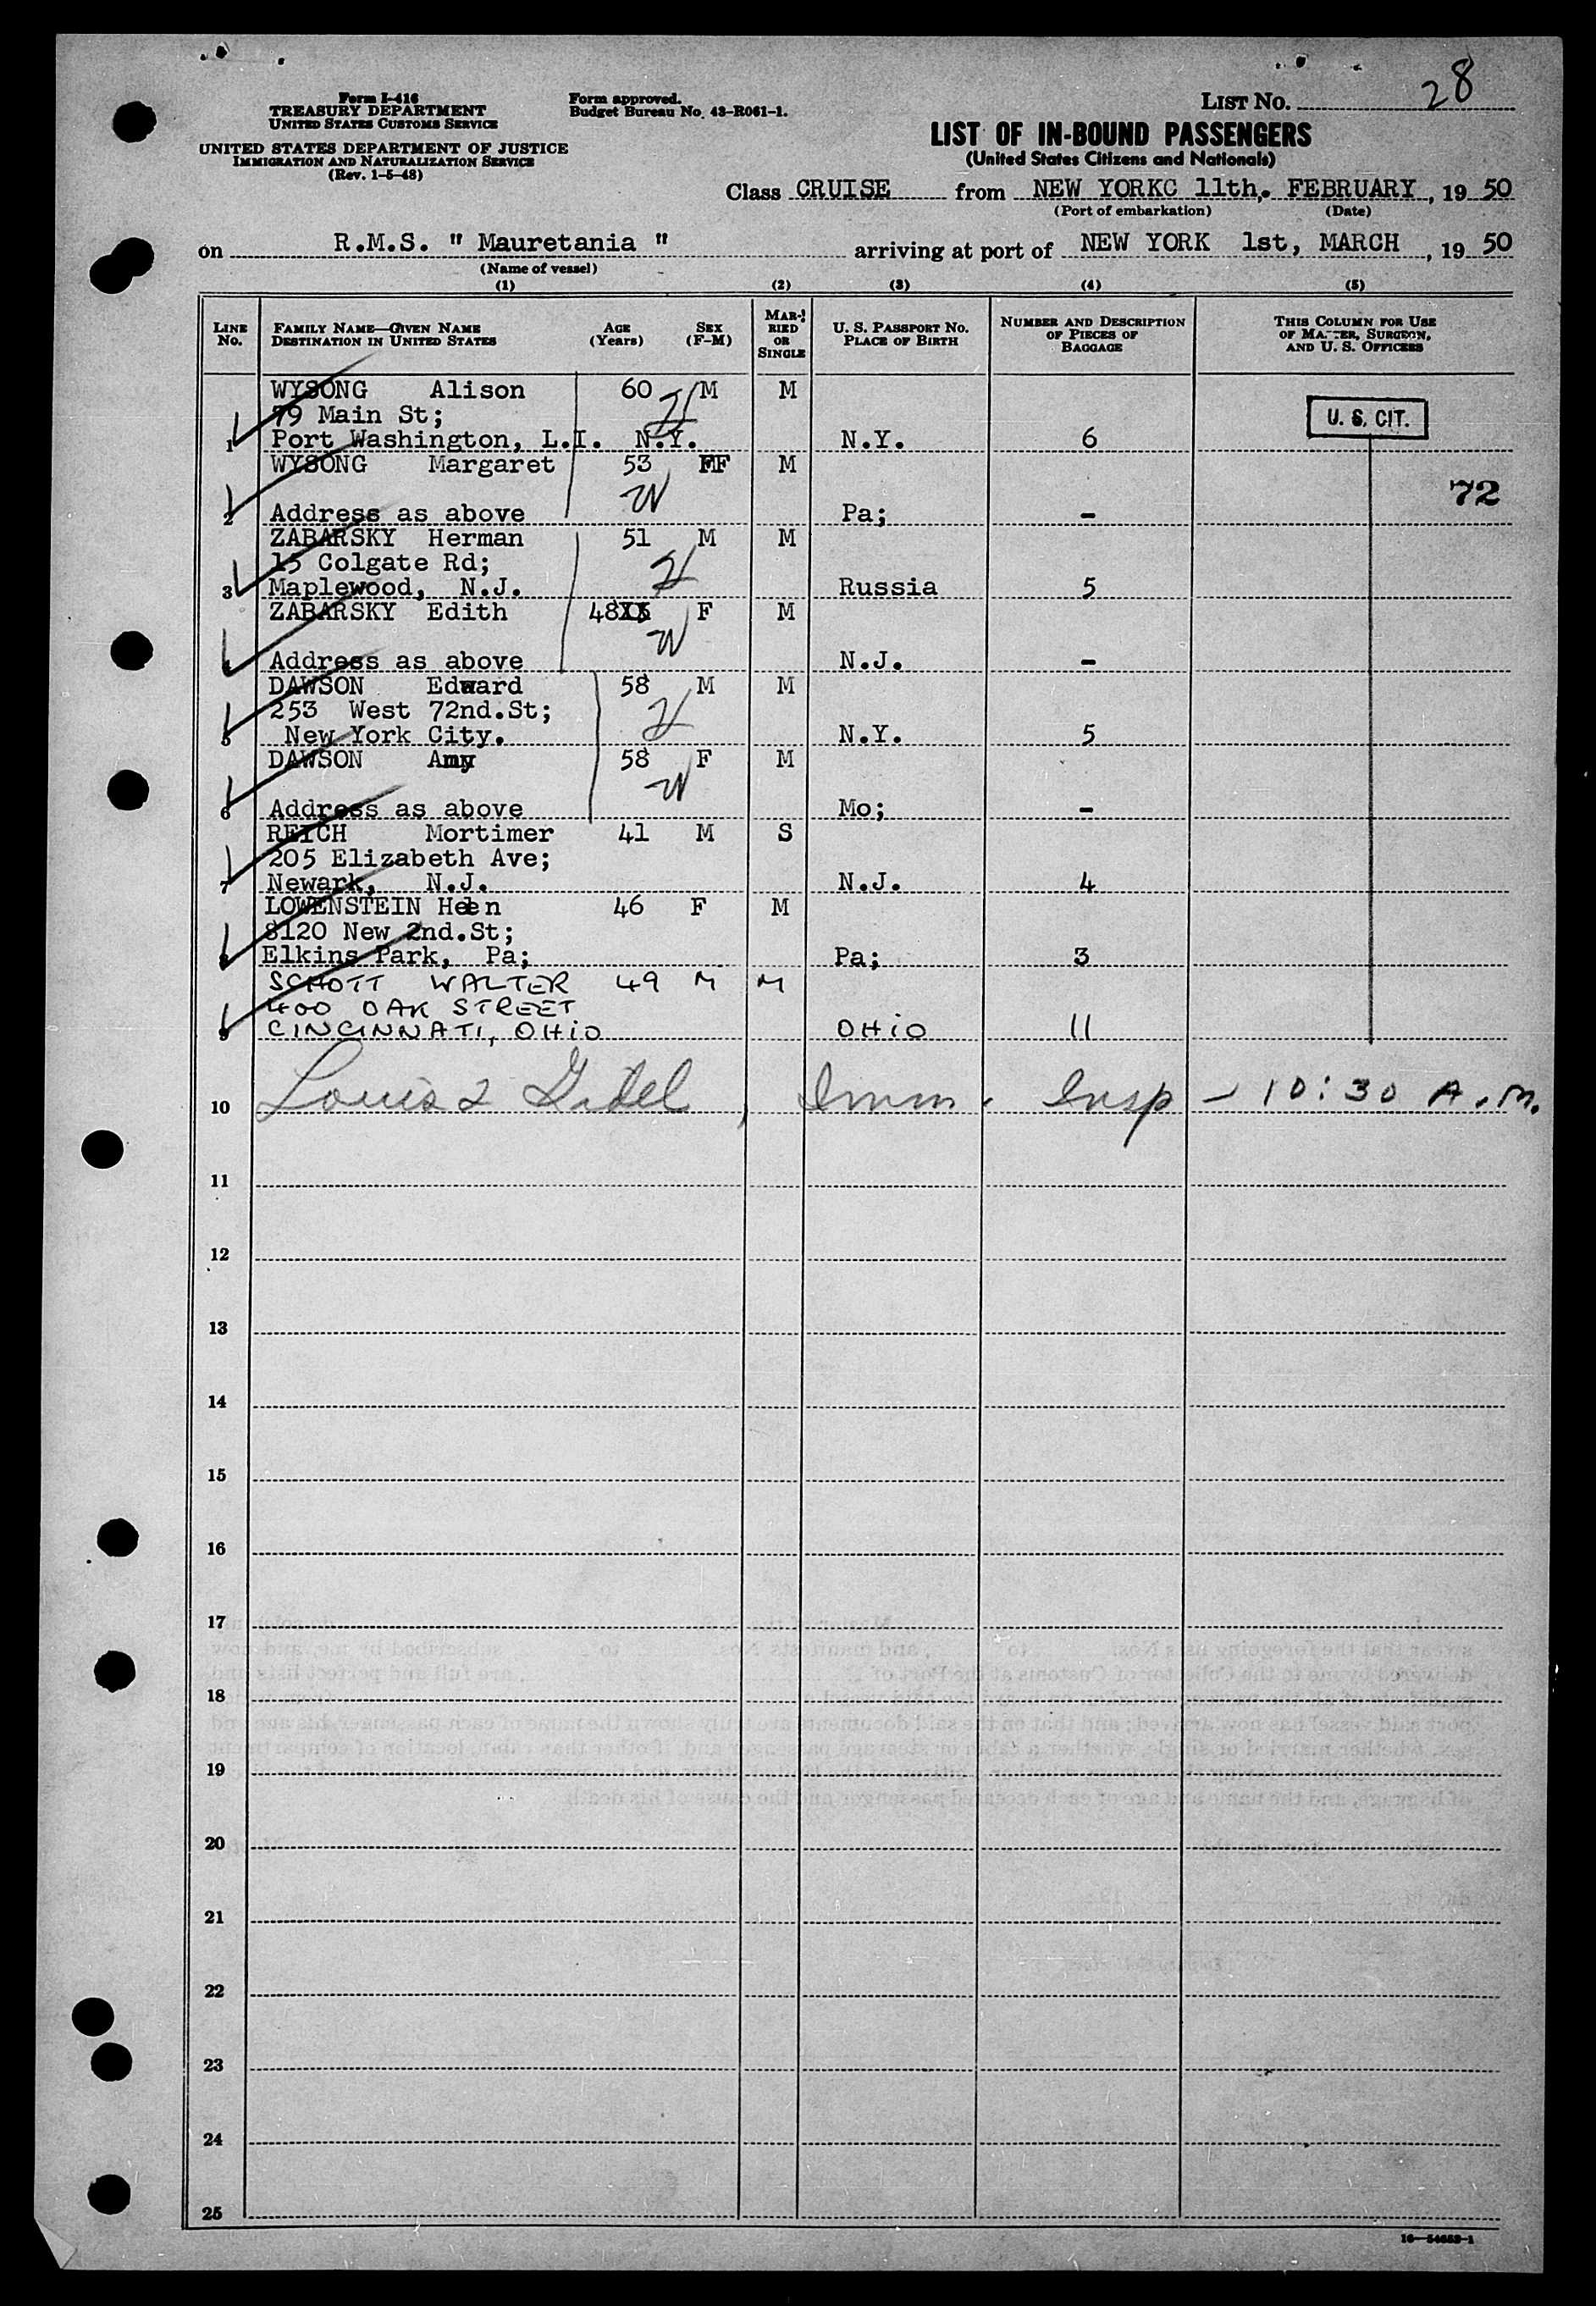 Form I-416
TREASURY DEPARTMENT
UNITED STATES CUSTOMS SERVICE
UNITED STATES DEPARTMENT OF JUSTICE
IMMIGRATION AND NATURALIZATION SERVICE
(Rev. 1-5-48)
Form approved.
Budget Bureau No. 43-R061-1.
LIST NO. 28
LIST OF IN-BOUND PASSENGERS
(United States Citizens and Nationals)
Class CRUISE from NEW YORKC 11th,. FEBRUARY, 19 50
(Port of embarkation) (Date)
on R.M.S. " Mauretania " arriving at port of NEW YORK 1st, MARCH, 19 50
(Name of vessel)
(1) (2) (3) (4) (5)
LINE NO.
FAMILY NAME—GIVEN NAME
DESTINATION IN UNITED STATES
AGE (Years)
SEX (F-M)
MARRIED OR SINGLE
U. S. PASSPORT NO.
PLACE OF BIRTH
NUMBER AND DESCRIPTION
OF PIECES OF
BAGGAGE
THIS COLUMN FOR USE
OF MASTER, SURGEON,
AND U. S. OFFICERS
WYSONG Alison 60 M M
79 Main St; H
1 Port Washington, L.I. N.Y. N.Y. 6 U. S. CIT.
WYSONG Margaret 53 FF M
W 72
2 Address as above Pa; -
ZABARSKY Herman 51 M M
15 Colgate Rd; H
3 Maplewood, N.J. Russia 5
ZABARSKY Edith 48 F M
W
4 Address as above N.J. -
DAWSON Edward 58 M M
253 West 72nd.St; H
5 New York City. N.Y. 5
DAWSON Amy 58 F M
W
6 Address as above Mo; -
REICH Mortimer 41 M S
205 Elizabeth Ave;
7 Newark, N.J. N.J. 4
LOWENSTEIN Helen 46 F M
8120 New 2nd.St;
8 Elkins Park, Pa; Pa; 3
SCHOTT WALTER 49 M M
400 OAK STREET
9 CINCINNATI, OHIO OHIO 11
10 Louis Gidel, Imm. Insp - 10:30 A.M.
11
12
13
14
15
16
17
18
19
20
21
22
23
24
25